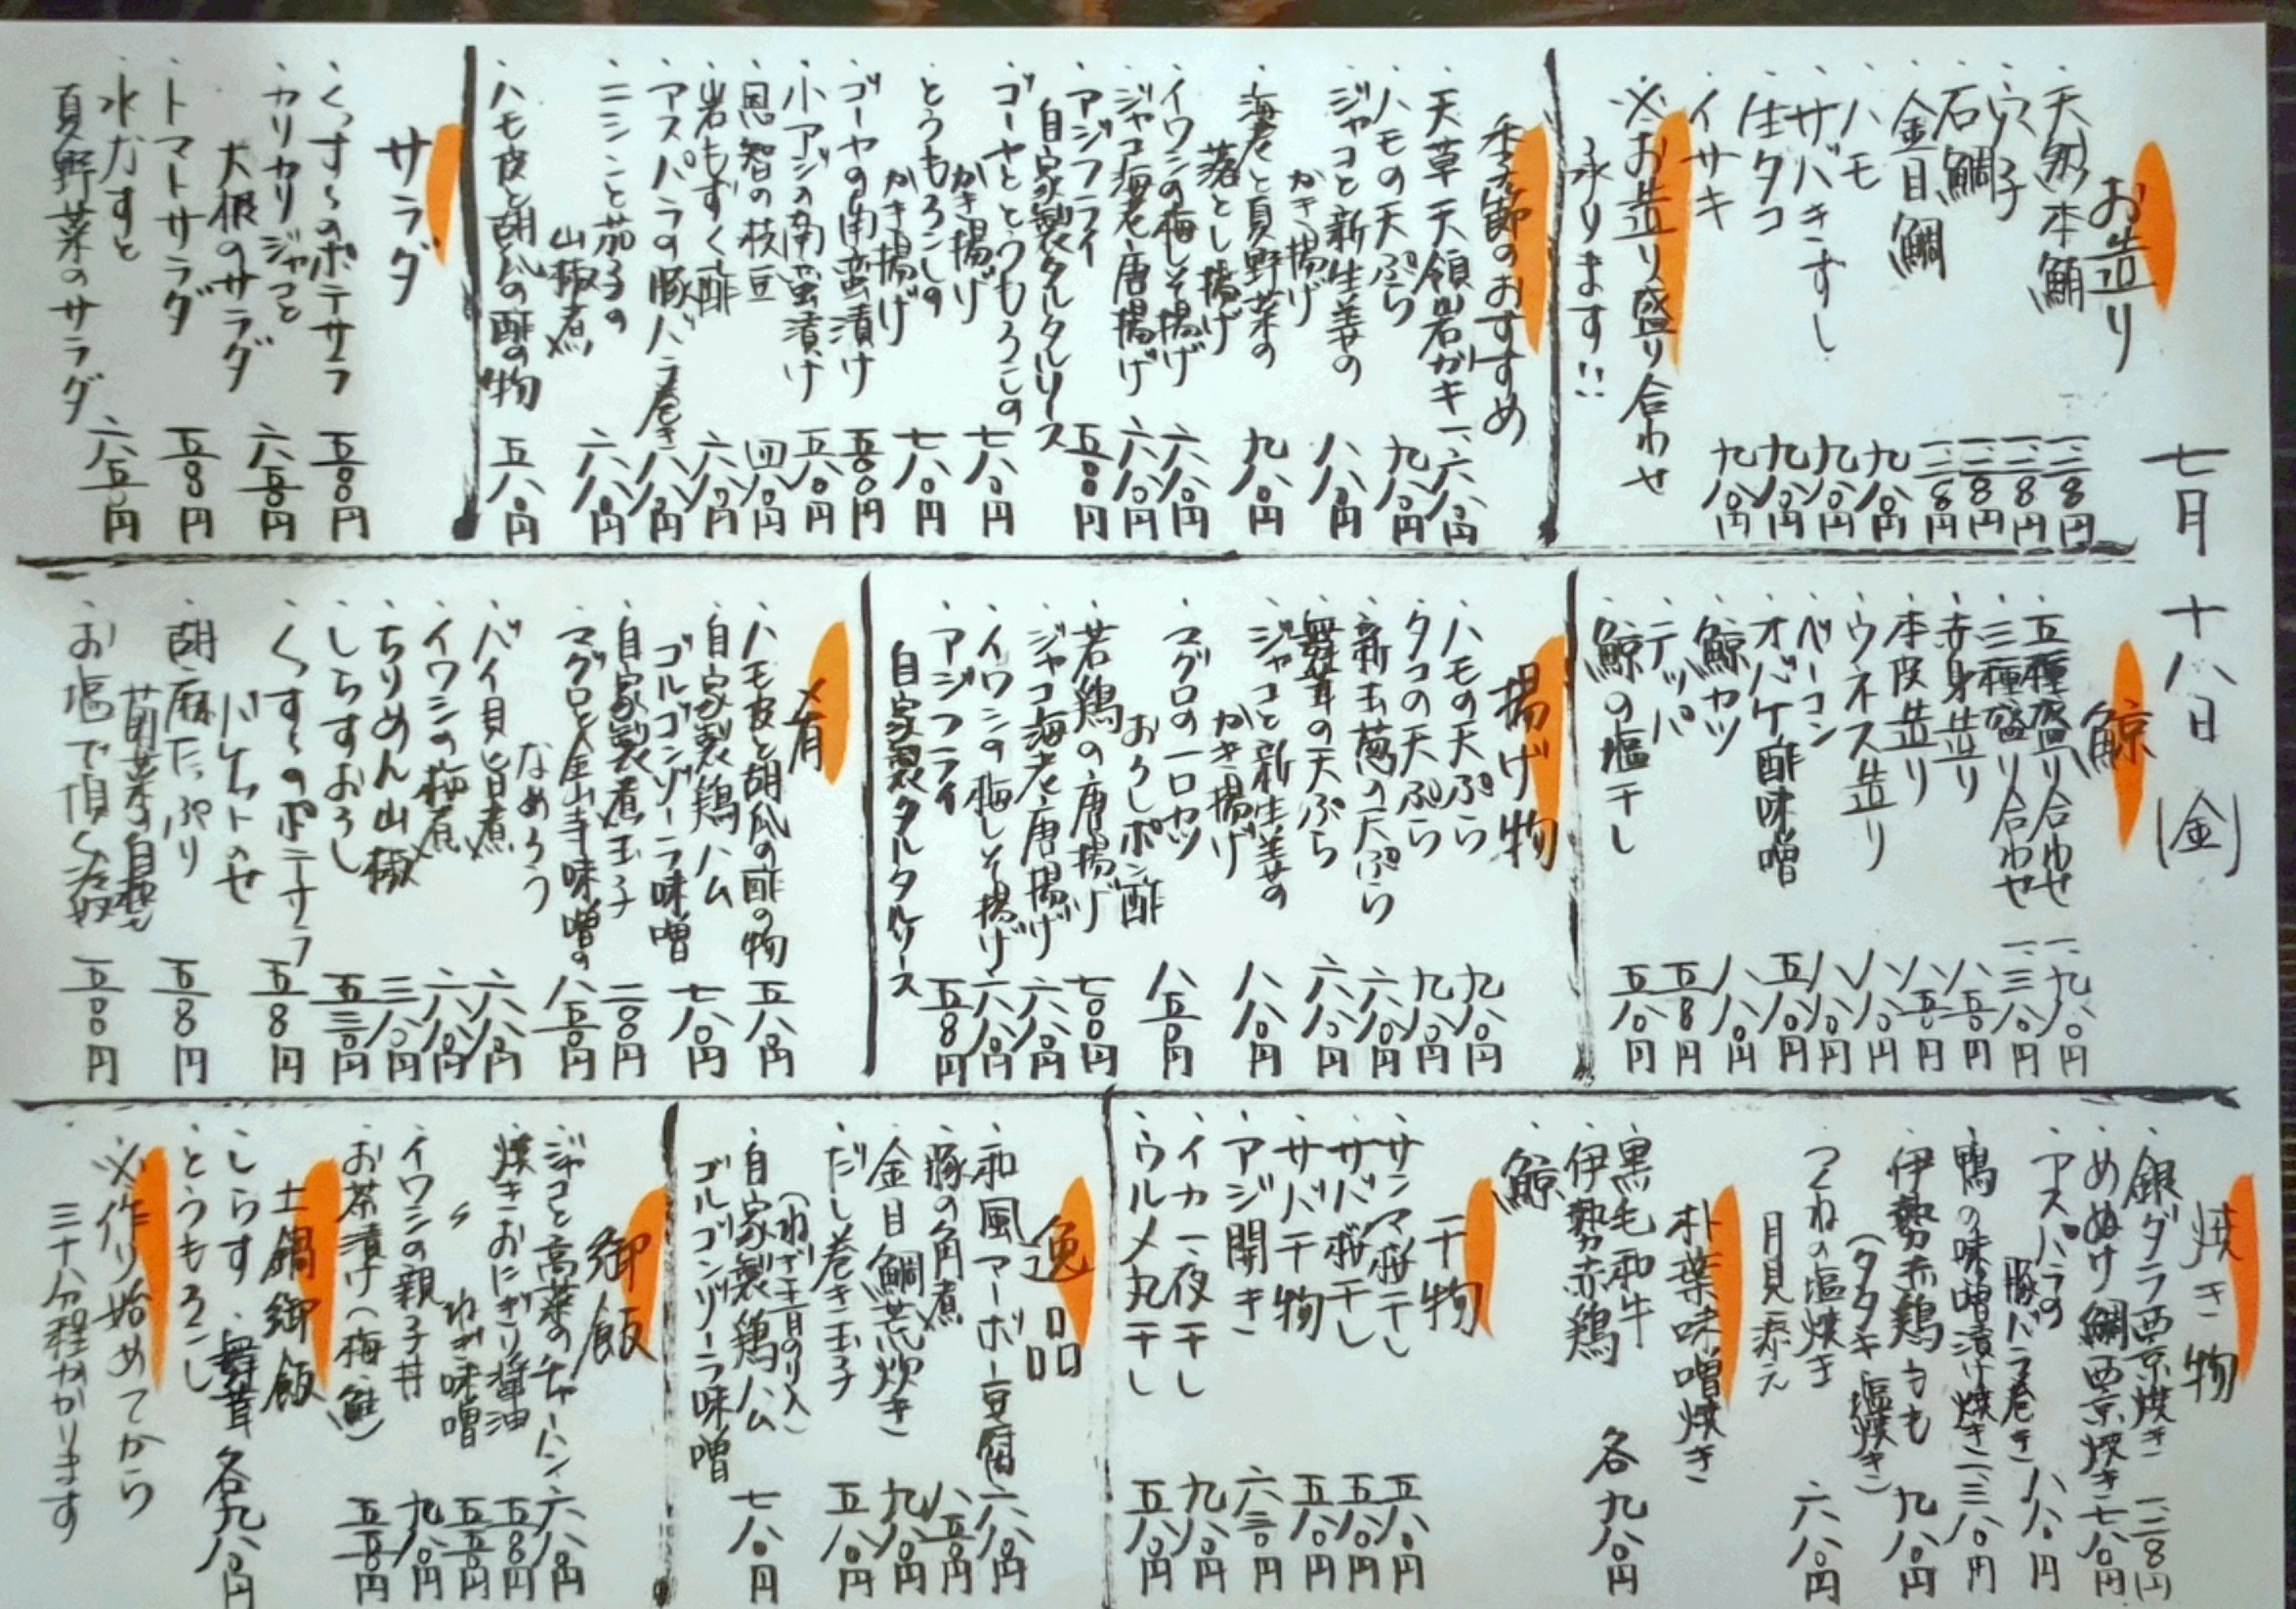 七月十八日(金)
お造り
・天然本鮪
・ウニ
・石鯛
・金目鯛
・ハモ
・サバきずし
・生タコ
・イサキ
九八〇円
九八〇円
九八〇円
九八〇円
※お造り盛り合わせ
承ります!!
季節のおすすめ
・天草天領岩ガキ 一、六八〇円
・ハモの天ぷら 九八〇円
・ジャコと新生姜の
かき揚げ 八八〇円
・海老と夏野菜の
落とし揚げ 九八〇円
・イワシの梅しそ揚げ 六八〇円
・ジャコ海老唐揚げ 六八〇円
・アジフライ
自家製タルタルソース 五八〇円
・ゴーヤととうもろこしの
かき揚げ 七八〇円
・とうもろこしの
かき揚げ 七八〇円
・ゴーヤの南蛮漬け 五八〇円
・小アジの南蛮漬け 五八〇円
・恩智の枝豆 四八〇円
・岩もずく酢 六八〇円
・アスパラの豚バラ巻き 八八〇円
・ニシンと茄子の
山椒煮 六八〇円
・ハモ皮と胡瓜の酢の物 五八〇円
サラダ
・くっすーのポテサラ 五八〇円
・カリカリジャコと
大根のサラダ 六八〇円
・トマトサラダ 五八〇円
・水なすと
夏野菜のサラダ 六五〇円
鯨
・五種盛り合わせ 一、九八〇円
・三種盛り合わせ 一、三八〇円
・赤身造り 八五〇円
・本皮造り 八五〇円
・ウネス造り 八八〇円
・ベーコン 八八〇円
・オバケ酢味噌 五八〇円
・鯨カツ 八八〇円
・テッパ 五八〇円
・鯨の塩干し 五八〇円
揚げ物
・ハモの天ぷら 九八〇円
・タコの天ぷら 九八〇円
・新玉葱の天ぷら 六八〇円
・舞茸の天ぷら 六八〇円
・ジャコと新生姜の
かき揚げ 八八〇円
・マグロの一口カツ
おろしポン酢 八五〇円
・若鶏の唐揚げ 七〇〇円
・ジャコ海老唐揚げ 六八〇円
・イワシの梅しそ揚げ 六八〇円
・アジフライ
自家製タルタルソース 五八〇円
肴
・ハモ皮と胡瓜の酢の物 五八〇円
・自家製鶏ハム
ゴルゴンゾーラ味噌 七八〇円
・自家製煮玉子 二〇〇円
・マグロと金山寺味噌の
なめろう 八五〇円
・バイ貝旨煮 六八〇円
・イワシの梅煮 六八〇円
・ちりめん山椒 三八〇円
・しらすおろし 五三〇円
・くっすーのポテサラ
バケットのせ 五八〇円
・胡麻たっぷり 五八〇円
・お塩で頂く冷奴 五八〇円
焼き物
・銀ダラ西京焼き 一、二八〇円
・めぬけ鯛西京焼き 七八〇円
・アスパラの
豚バラ巻き 八八〇円
・鴨の味噌漬け焼き 一、三八〇円
・伊勢赤鶏もも
(タタキ・塩焼き) 九八〇円
・つくねの塩焼き
月見添え 六八〇円
朴葉味噌焼き
・黒毛和牛
・伊勢赤鶏 各九八〇円
・鯨
干物
・サンマ桜干し 五八〇円
・サバ桜干し 五八〇円
・サバ干物 五八〇円
・アジ開き 六三〇円
・イカ一夜干し 九八〇円
・ウルメ丸干し 五八〇円
逸品
・和風マーボー豆腐 六八〇円
・豚の角煮 八五〇円
・金目鯛荒炊き 九八〇円
・だし巻き玉子 五八〇円
(ねぎ・玉・青のり入)
・自家製鶏ハム
ゴルゴンゾーラ味噌 七八〇円
御飯
・ジャコと高菜のチャーハン 六八〇円
・焼きおにぎり醤油 五八〇円
〃 ねぎ味噌 五五〇円
・イワシの親子丼 九八〇円
・お茶漬け(梅・鮭) 五五〇円
土鍋御飯
・しらす・舞茸 各九八〇円
・とうもろこし
※作り始めてから
三十分程かかります